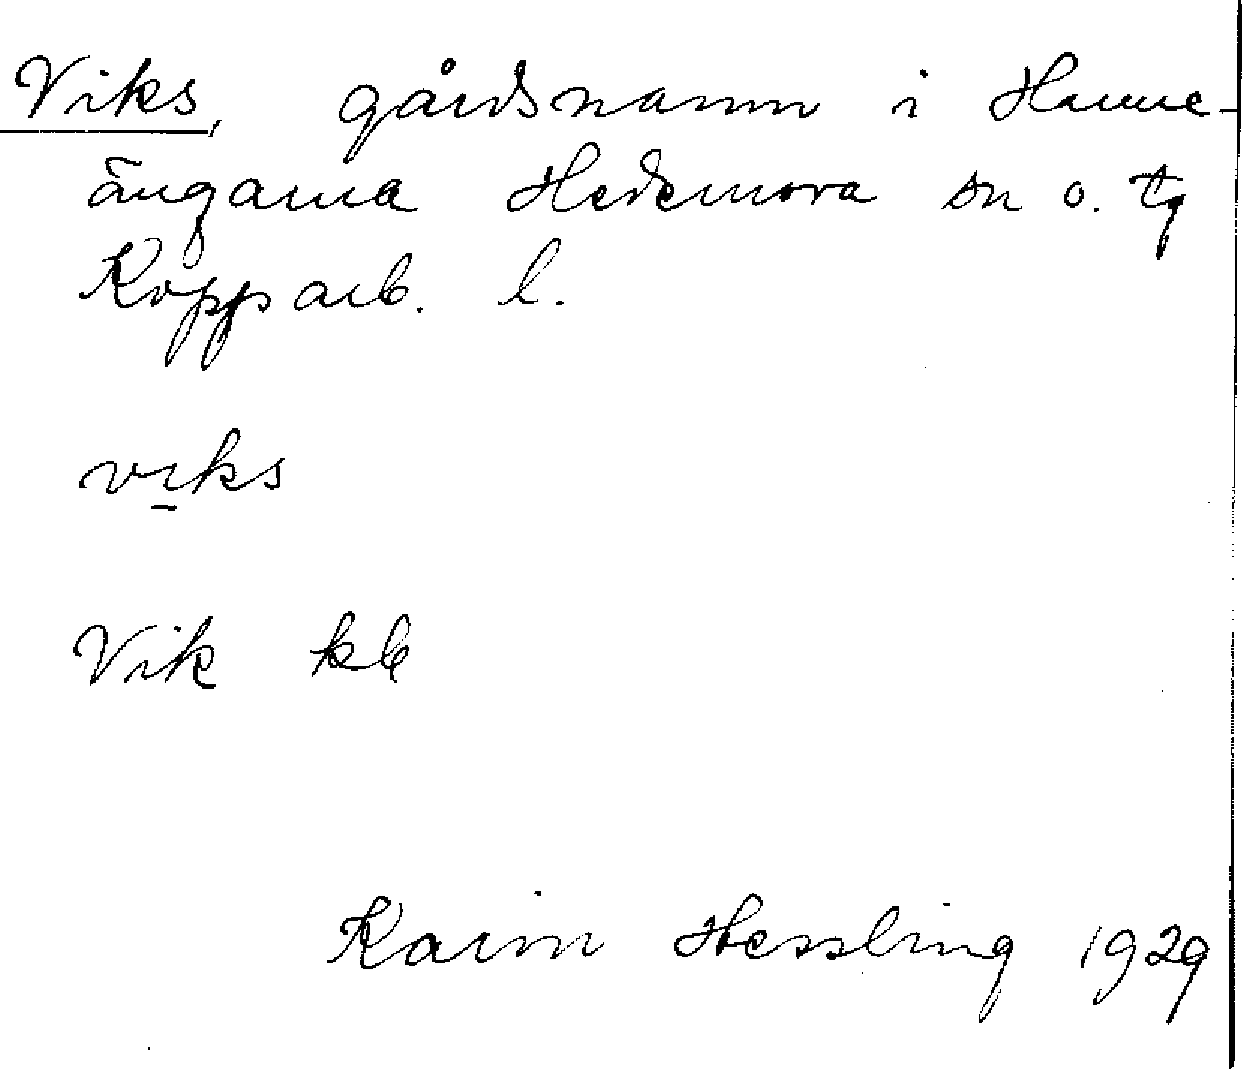 Viks, gårdsnamn i Hamre-
ängarna Hedemora sn o. tg
Kopparb. l.
viks
Vik kb
Karin Hessling 1929